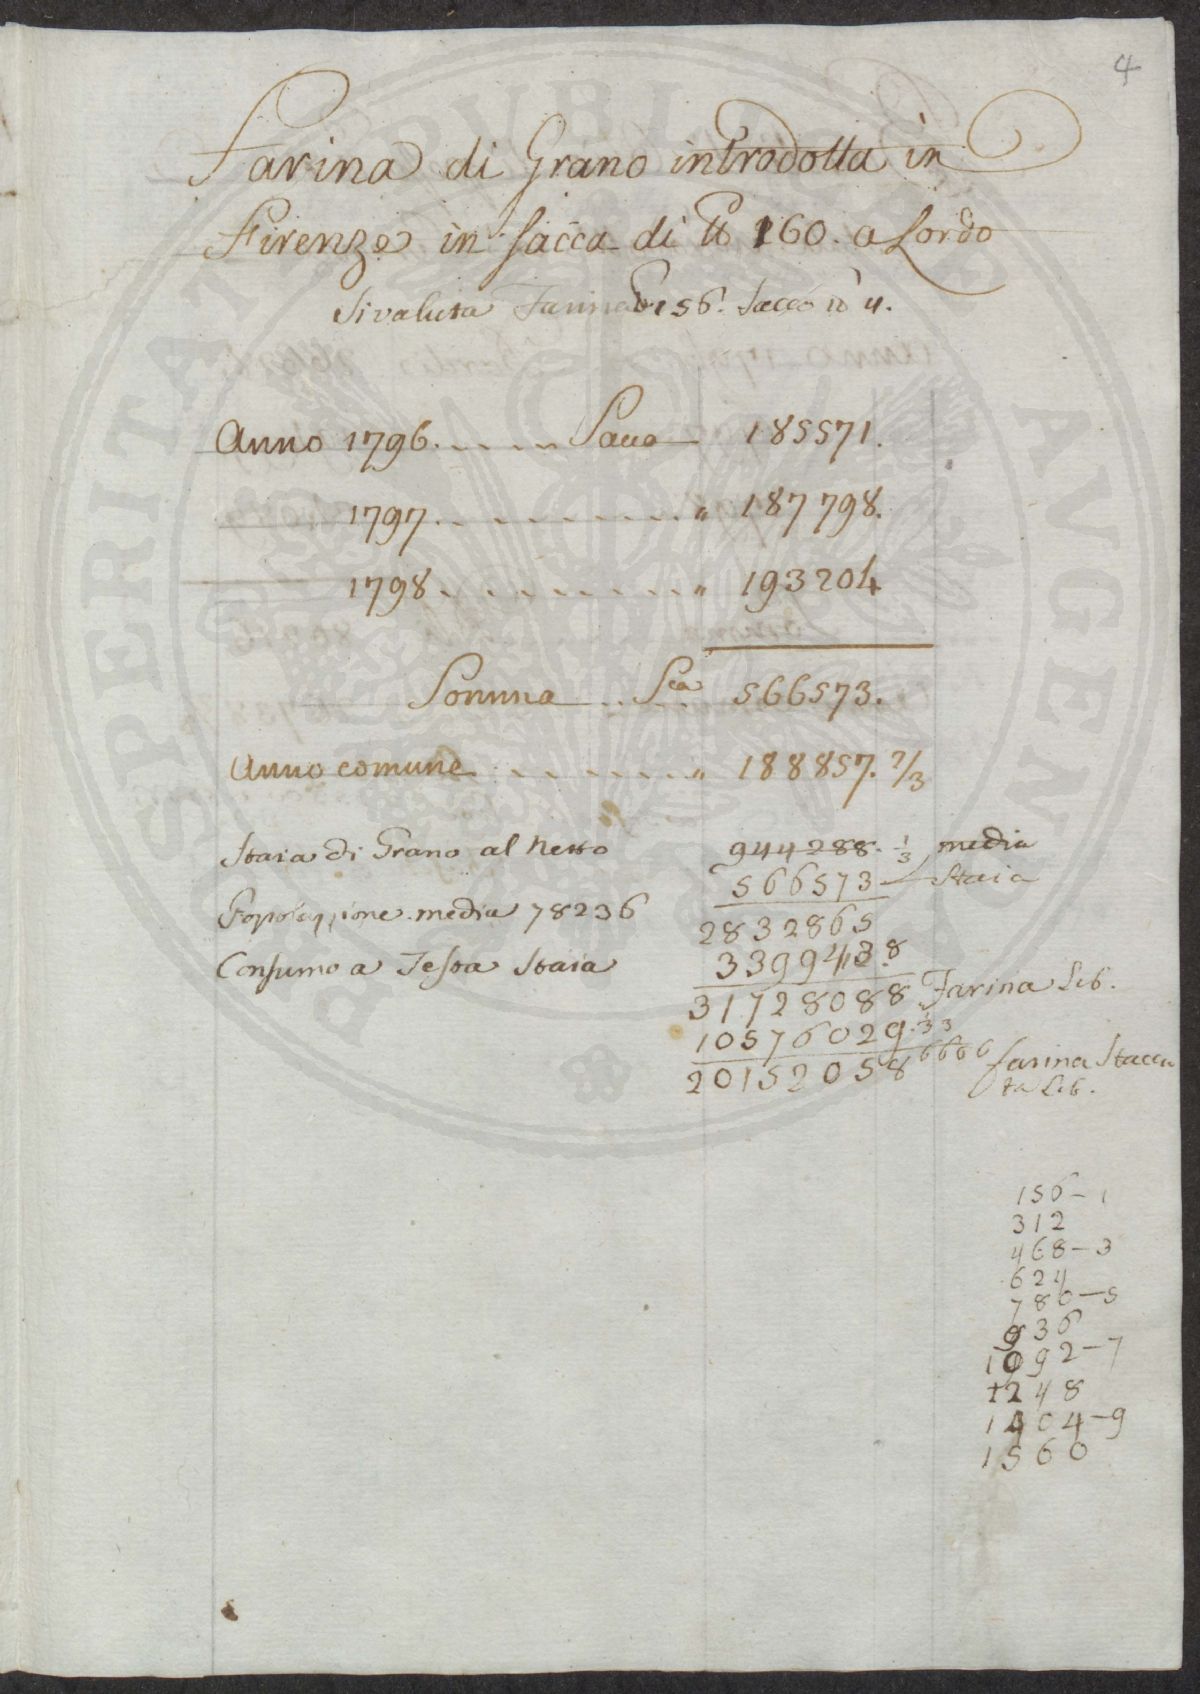 4
Farina di Grano introdotta in
Firenze in sacca di ℔ 160. a Lordo
Si valuta Farina ℔ 156. Sacco ℔ 4.
Anno 1796. . . . . . Sacca 185571.
1797. . . . . . . . . . " 187798.
1798. . . . . . . . . . " 193204
Somma . . . Sca 566573.
Anno comune . . . . . . . " 188857. 2/3
Staia di Grano al Netto 944288. 1/3 media
566573 — Staia
Popolazzione media 78236 2832865
Consumo a Testa Staia 3399438
31728088.8 Farina Lib.
10576029.33
20152058 6666 farina Stacca
ta Lib.
156 - 1
312
468 - 3
624
780 - 5
936
1092 - 7
1248
1404 - 9
1560
PERITAT PUBLICAE AUGEN